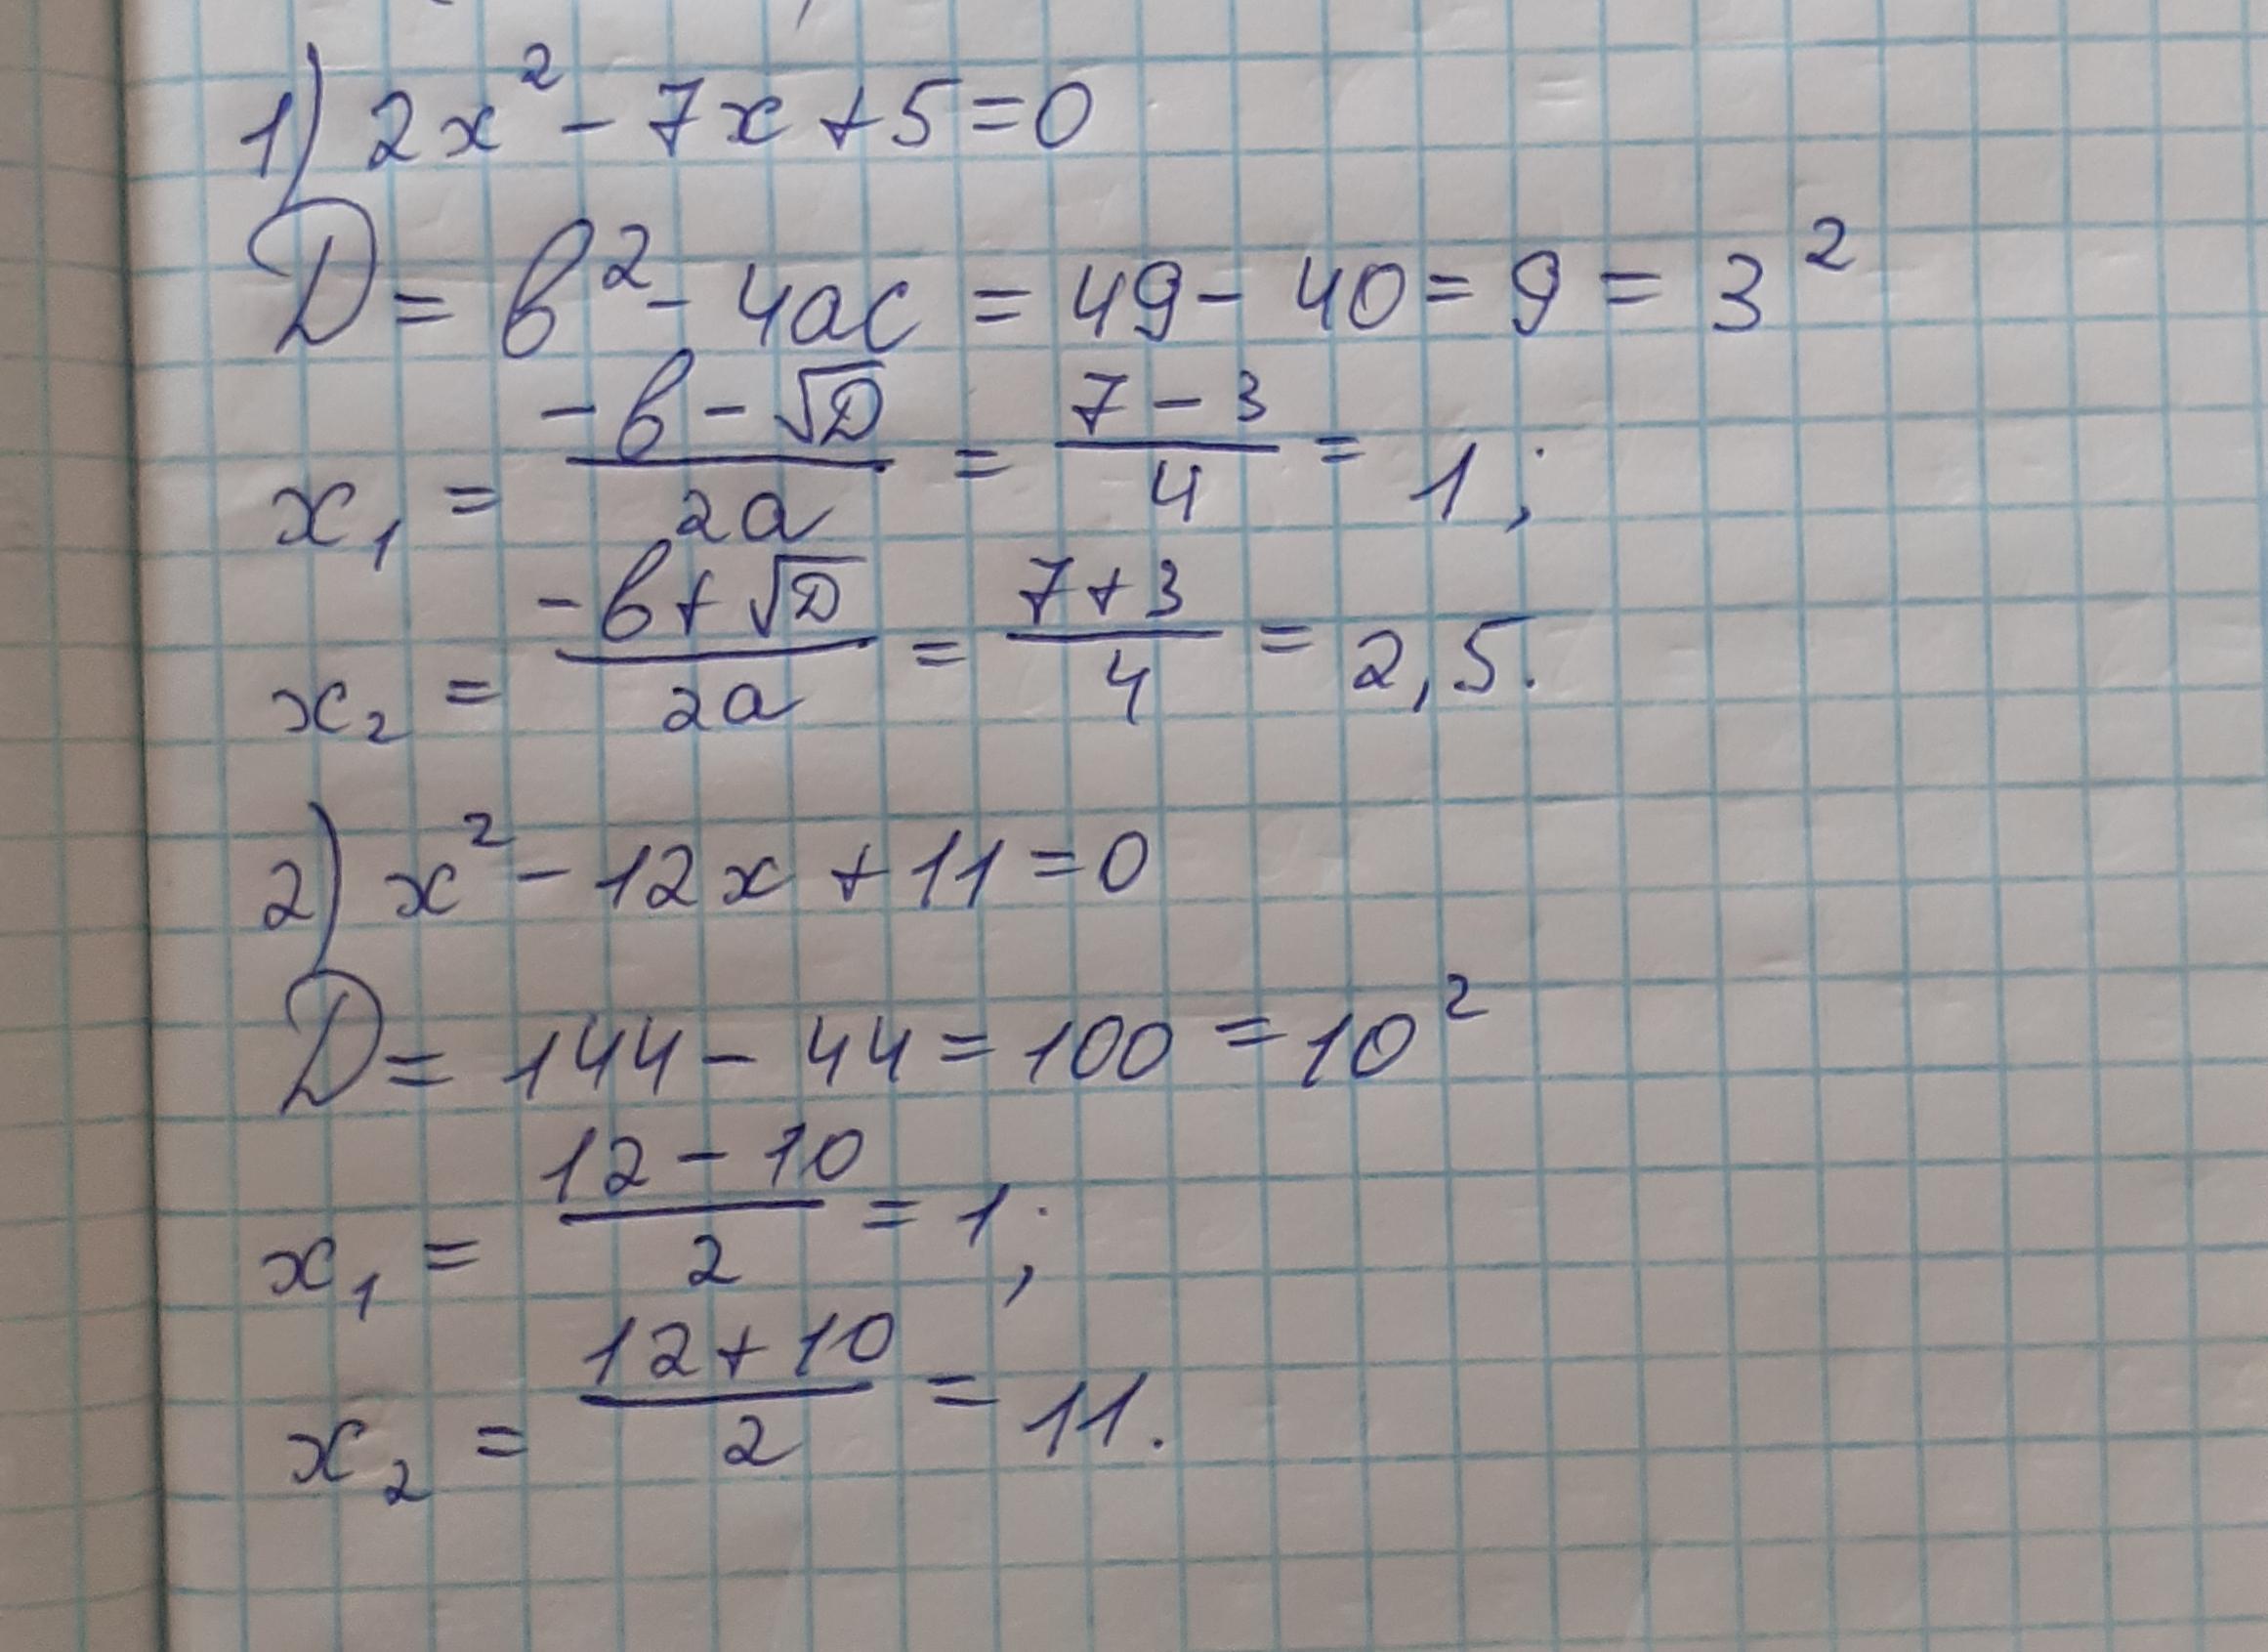 1) 2x² - 7x + 5 = 0
D = b² - 4ac = 49 - 40 = 9 = 3²
x₁ = (-b - √D)/(2a) = (7 - 3)/4 = 1;
x₂ = (-b + √D)/(2a) = (7 + 3)/4 = 2,5.
2) x² - 12x + 11 = 0
D = 144 - 44 = 100 = 10²
x₁ = (12 - 10)/2 = 1;
x₂ = (12 + 10)/2 = 11.